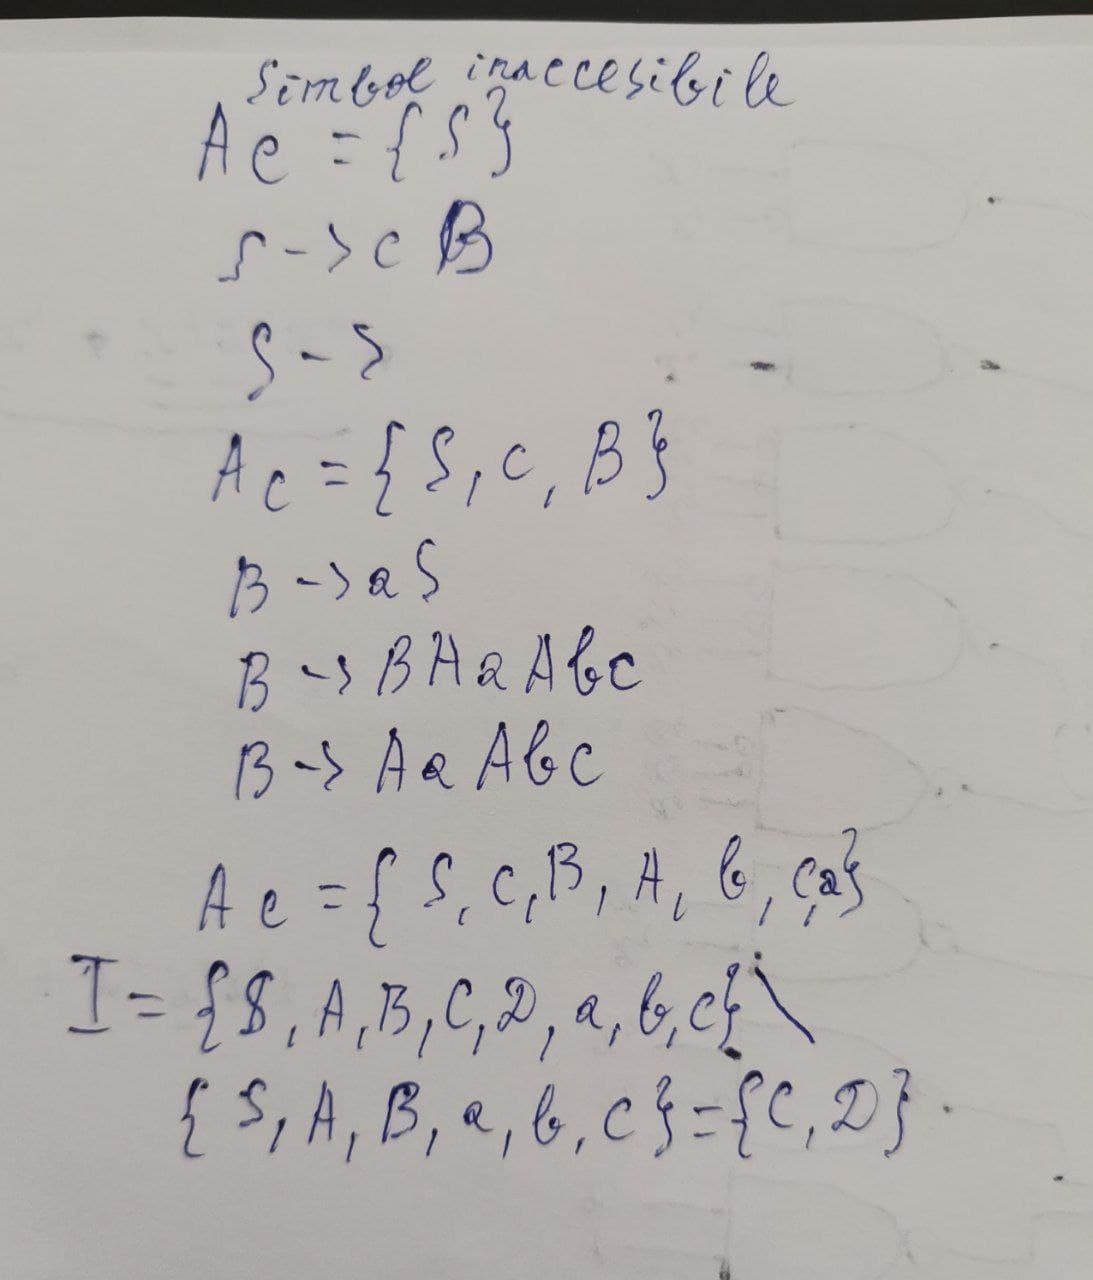 Simbol inaccesibile
Ac = {S}
S -> c B
S ->
Ac = {S, c, B}
B -> aS
B -> BAaAbc
B -> AaAbc
Ac = {S, c, B, A, b, c, a}
I = {S, A, B, C, D, a, b, c} \
{S, A, B, a, b, c} = {C, D}